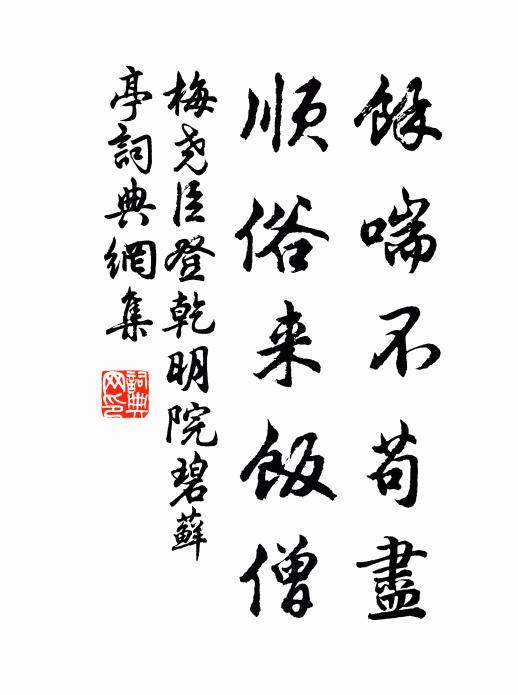 餘喘不苟盡
順俗来飯僧
梅尧臣登乾明院碧蘚
亭詞典網集
詞典
网印